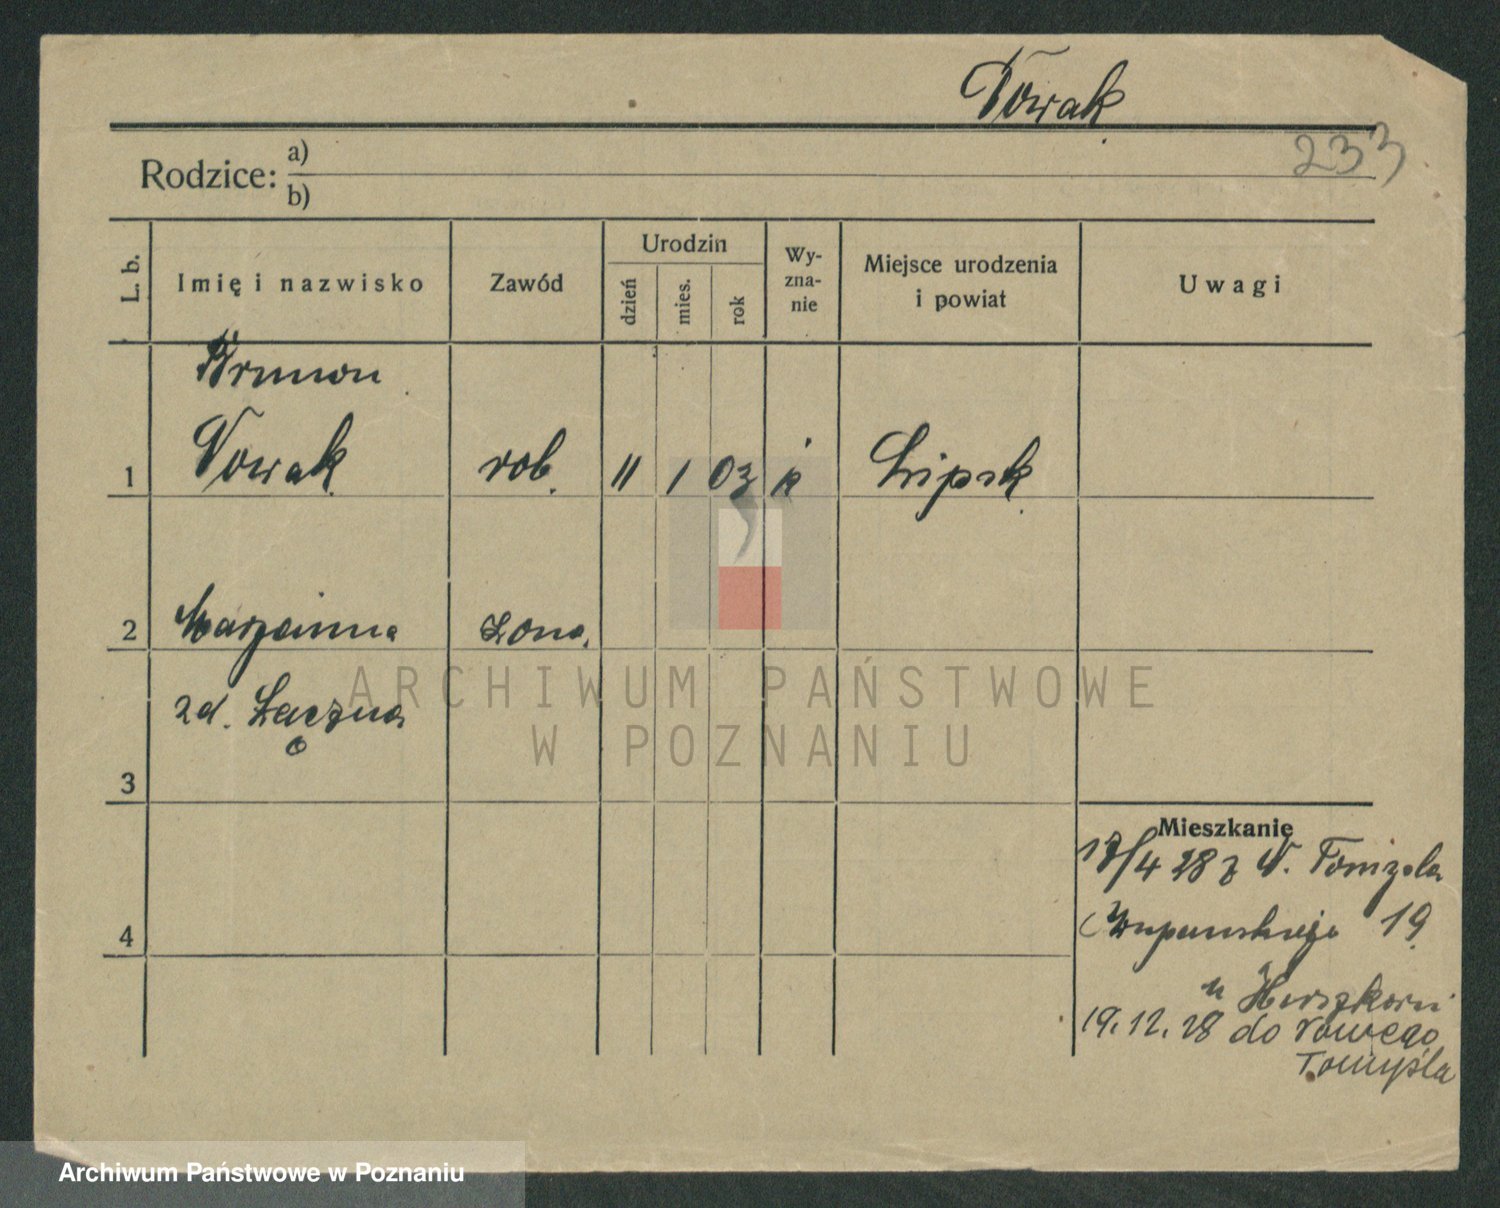 Nowak
233
Rodzice: a)
b)
L. b. Imię i nazwisko Zawód Urodzin dzień mies. rok Wy-zna-nie Miejsce urodzenia i powiat Uwagi
Brunon
1 Nowak rob. 11 1 03 k Lipsk
2 Marjanna żona
zd. Łączna
3
Mieszkanie
17/4 28 z N. Tomyśla
4 Żupańskiego 19
u
19.12.28 do Nowego
Tomyśla
ARCHIWUM PAŃSTWOWE
W POZNANIU
Archiwum Państwowe w Poznaniu